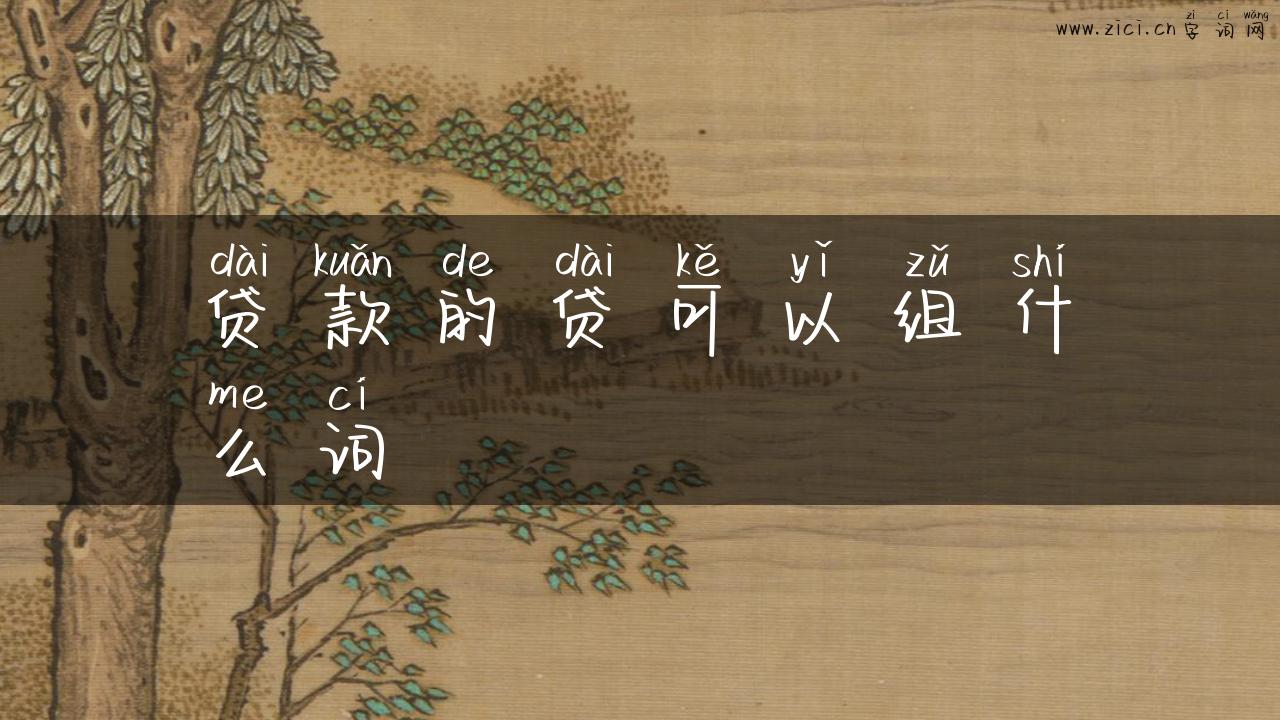 zì cí wǎng
www.zici.cn 字词网
dài kuǎn de dài kě yǐ zǔ shí
贷款的贷可以组什
me cí
么词